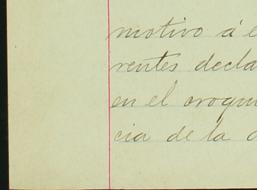 motivo á e
rentes decla
en el croqui
cia de la d